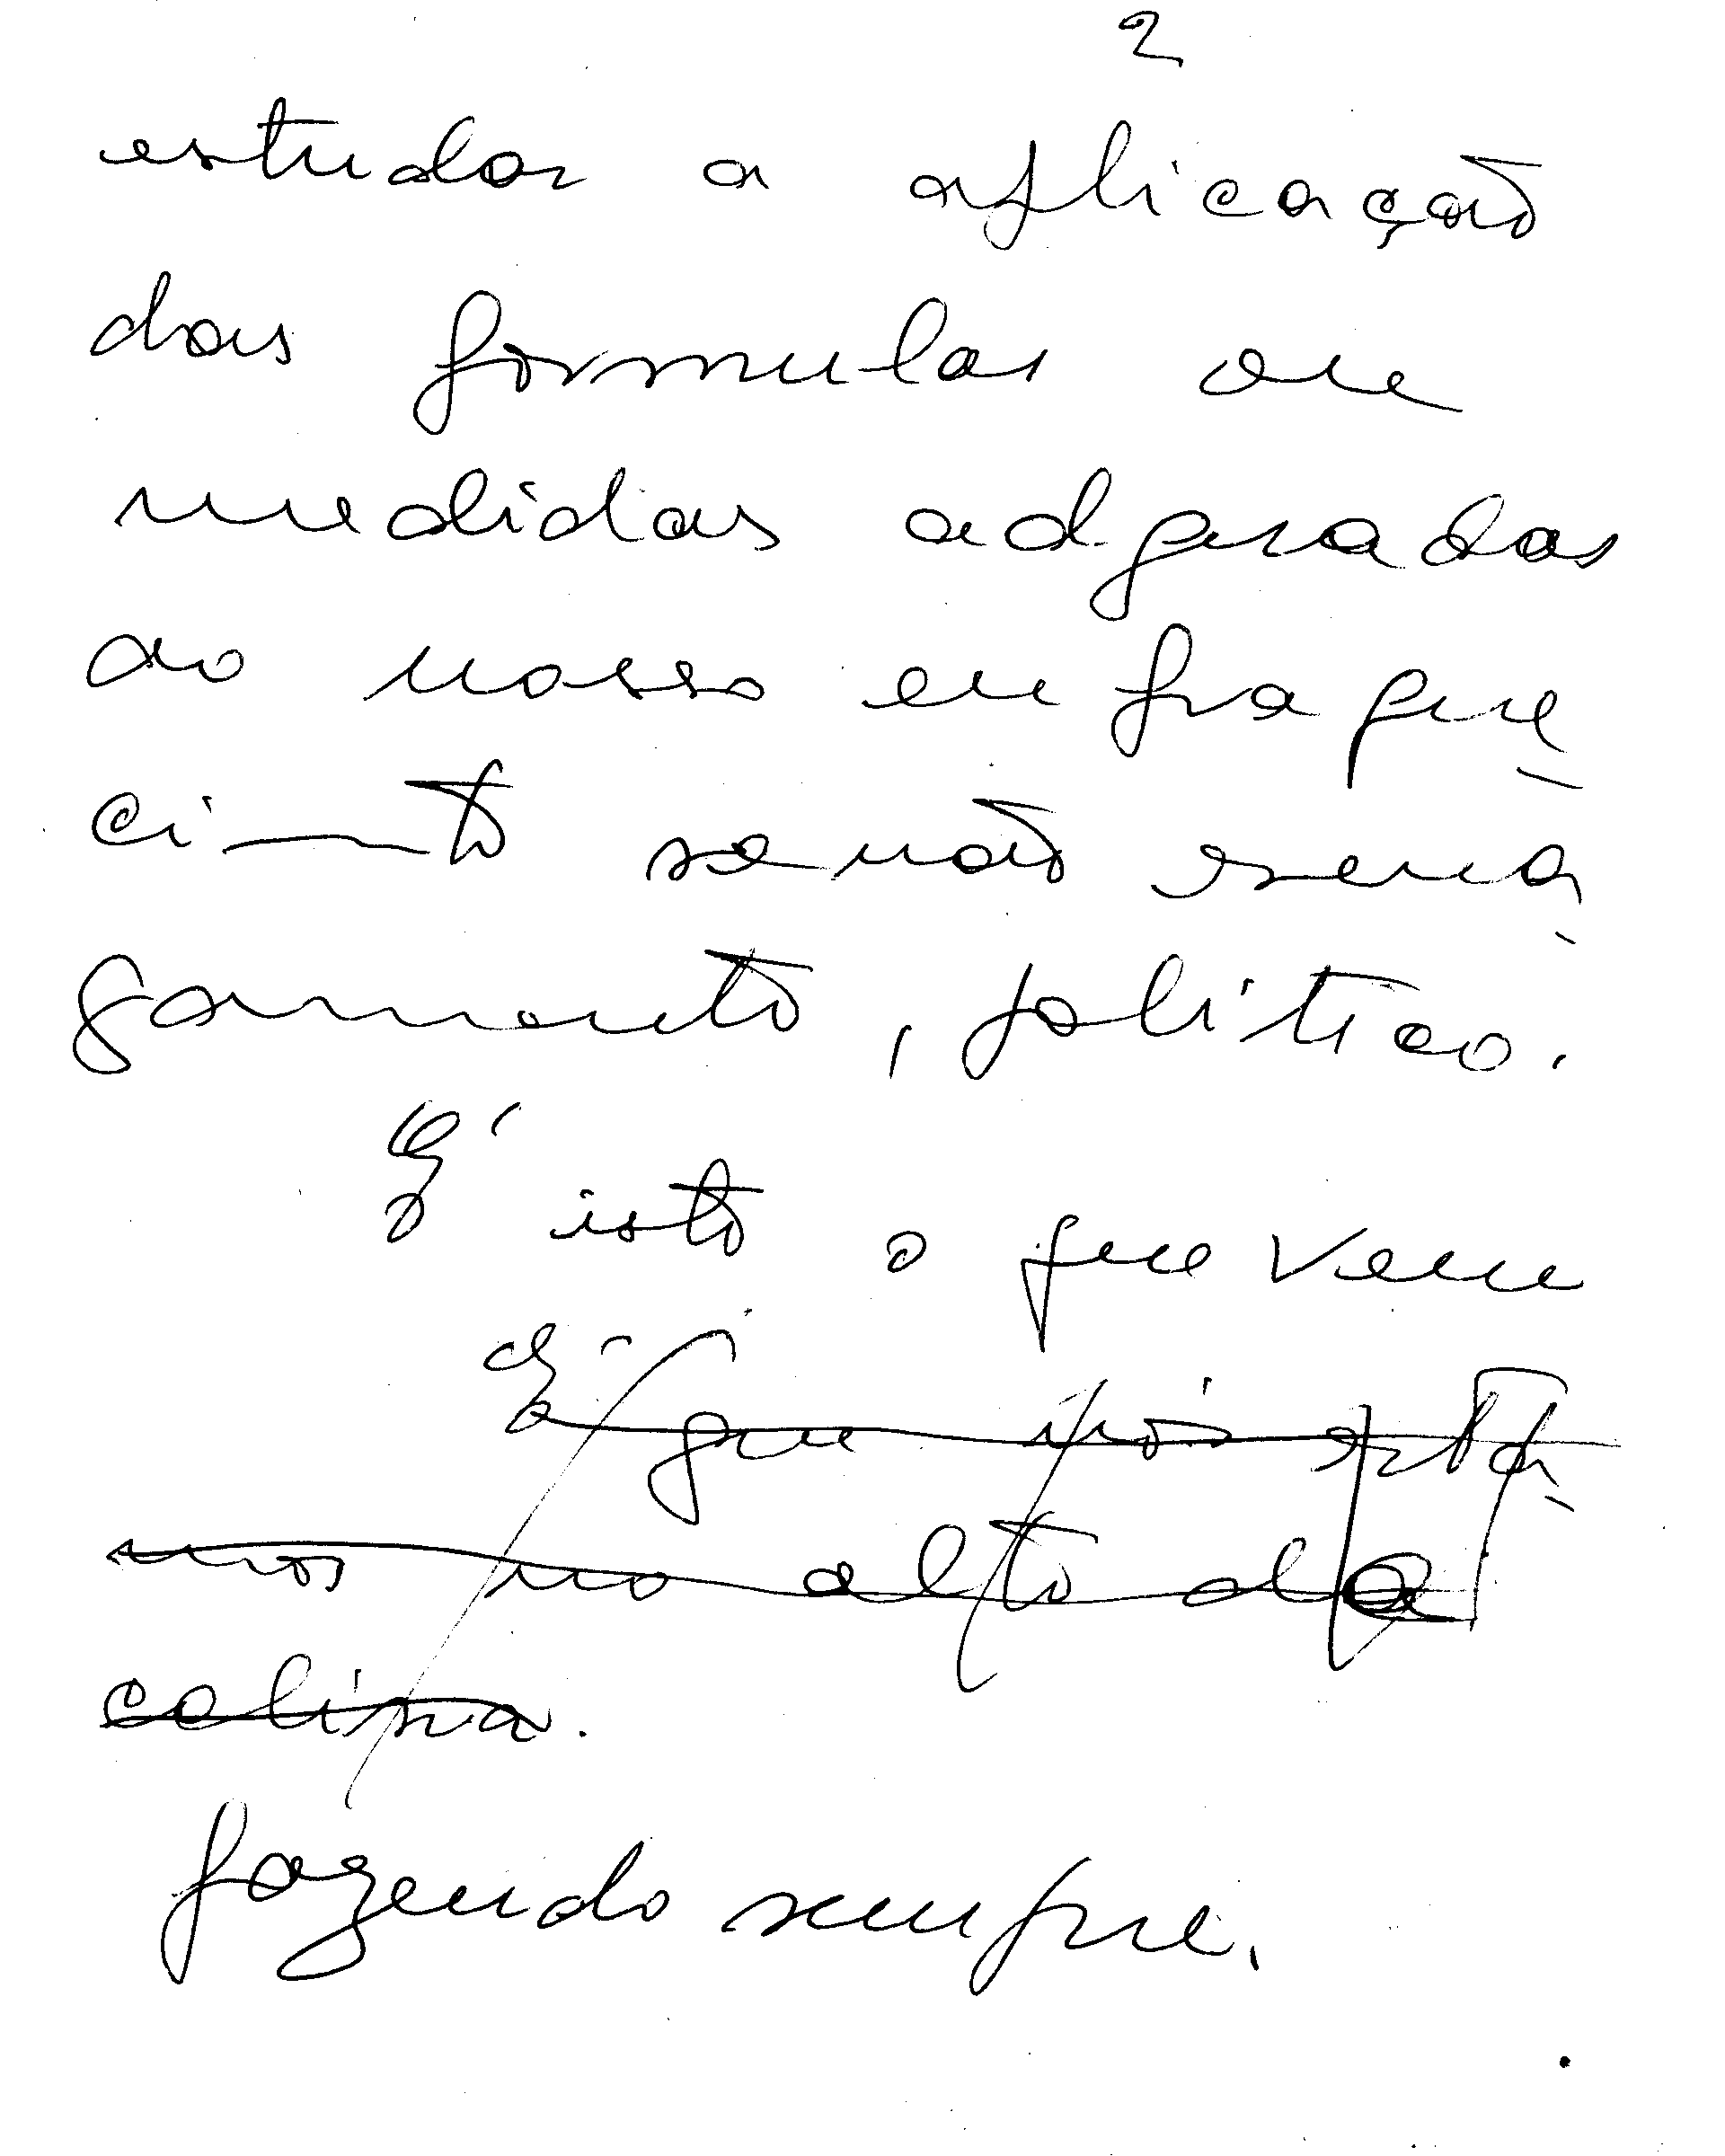 2
estudar a aplicação
das formulas ou
medidas adquadas
ao nosso enfraque
cimto senão esma
gamento, politico.
É isto o que vem
É que nós está
mos no alto da
colina.
fazendo sempre.